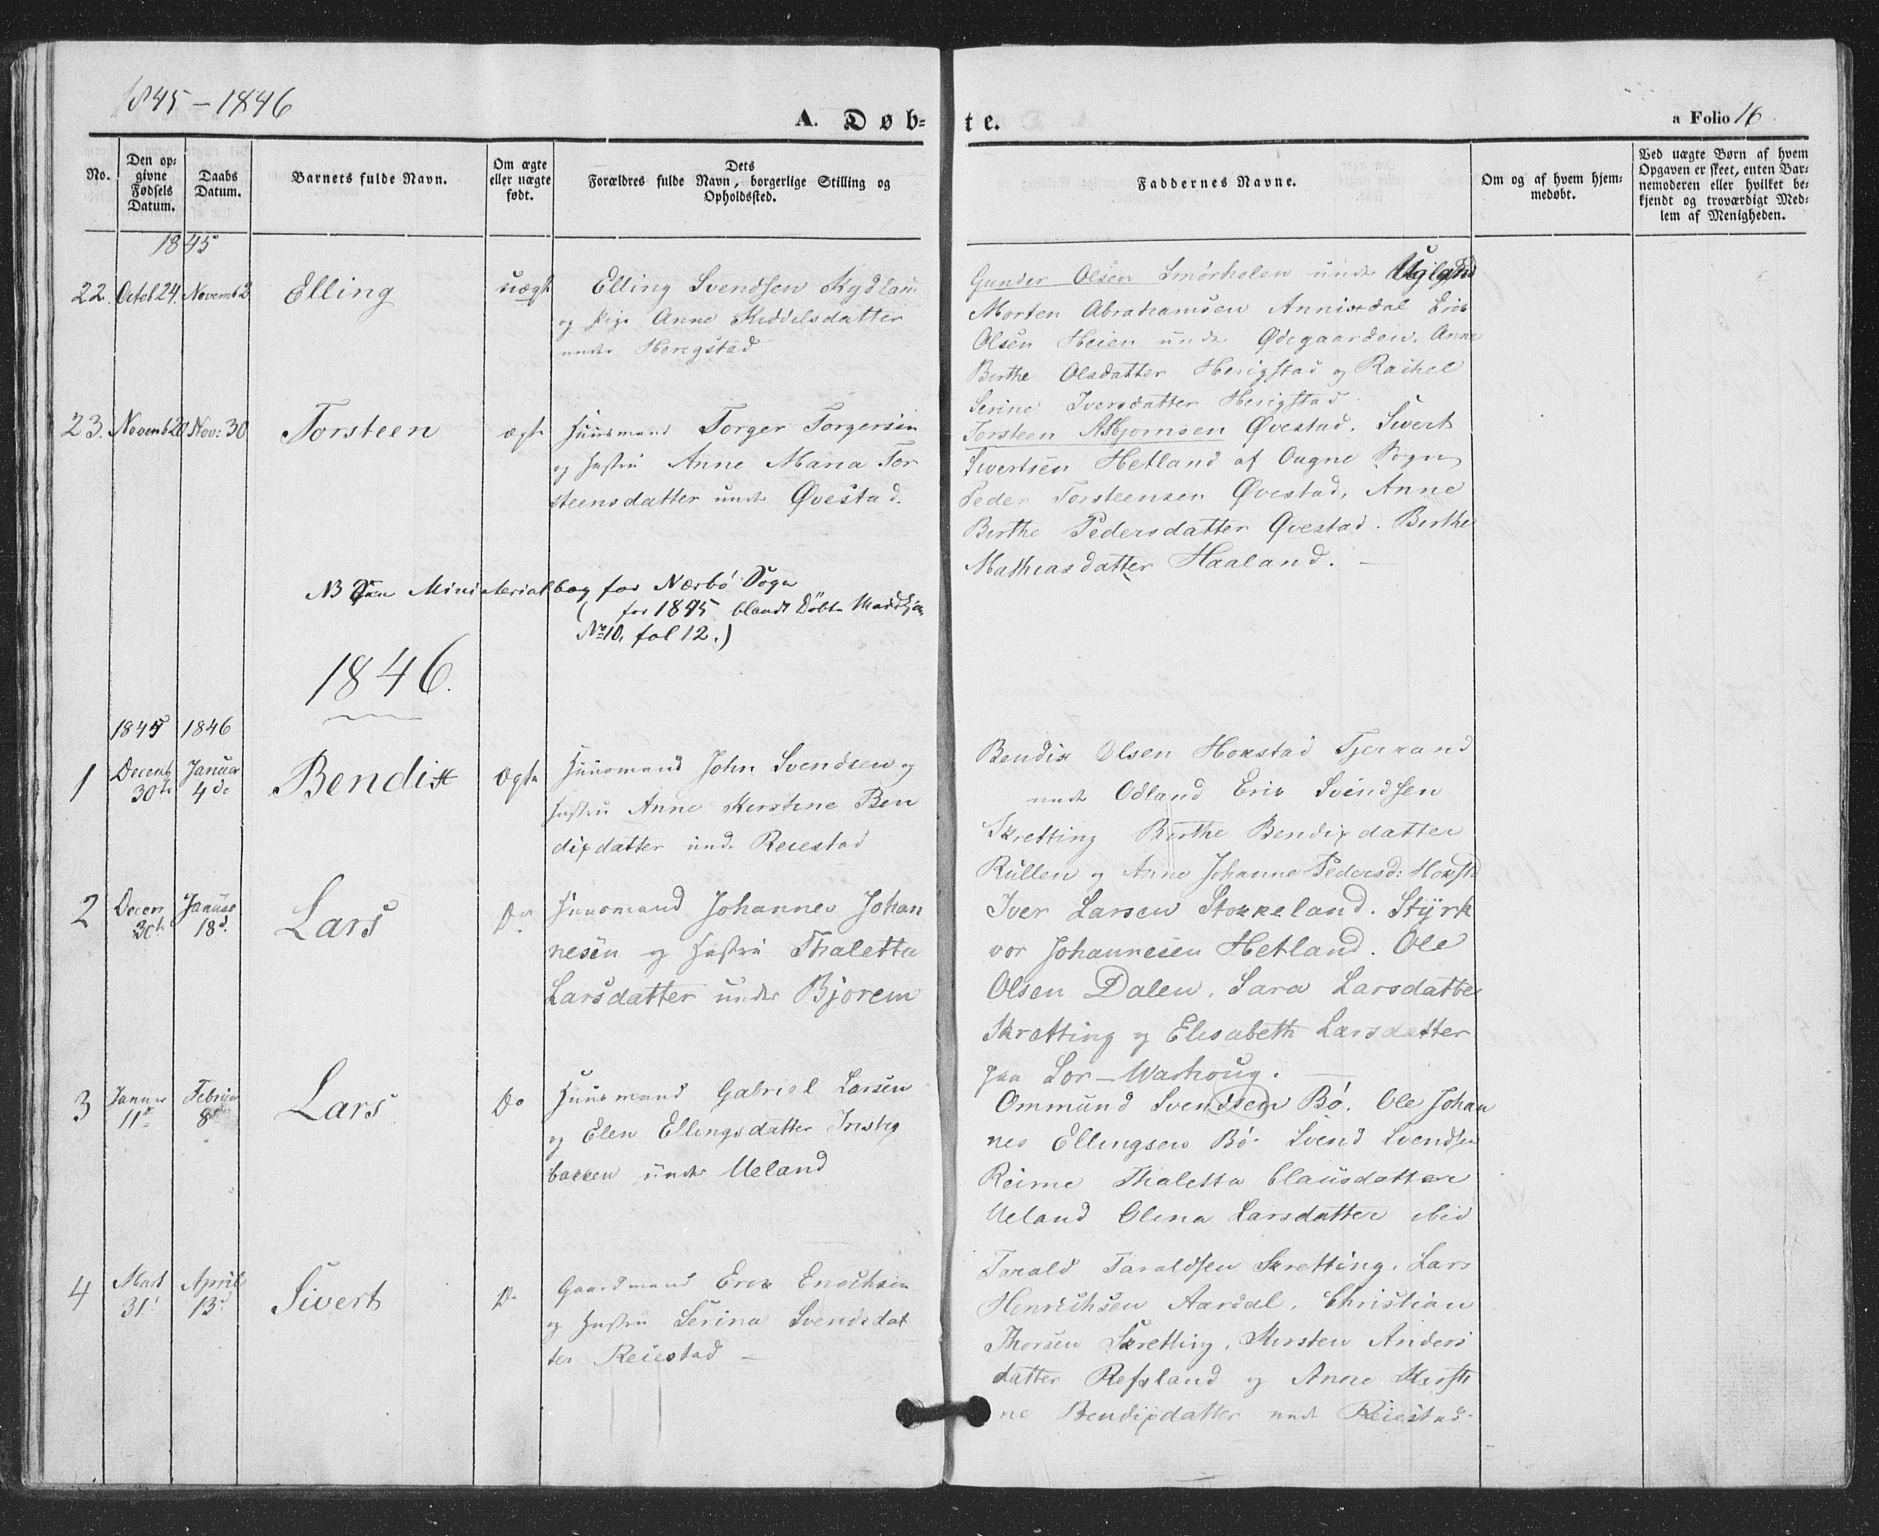 1845 - 1846
A. Døb-
te.
a Folio 16
No.
Den op-
givne
Fødsels
Datum.
Daabs
Datum.
Barnets fulde Navn.
Om ægte
eller uægte
født.
Dets
Forældres fulde Navn, borgerlige Stilling og
Opholdssted.
Faddernes Navne.
Om og af hvem hjem-
medøbt.
Ved uægte Børn af hvem
Opgaven er skeet, enten Bar-
nemoderen eller hvilket be-
kjendt og troværdigt Med-
lem af Menigheden.
1845
22. Octob 24. Novemb 2
Elling
uægte
Elling Svendsen
og Pige Anne Kiddelsdatter
under Herigstad
Gunder Olsen Smørholen under
Morten Abrahamsen Annisdal Erik
Olsen Heien under Ødegaarden. Anne
Berthe Olsdatter Herigstad og Rachel
Serine Iversdatter Herigstad
23. Novemb 20 Nov: 30
Torsteen
ægte
Huusmand Torger Torgersen
og Hustru Anne Maria Tor
steensdatter under Øvestad.
Torsteen Asbjornsen Øvestad. Sivert
Sivertsen Hetland af Ougne Sogn
Peder Torsteensen Øvestad, Anne
Berthe Pedersdatter Øvestad. Berthe
Mathiasdatter Haaland. -
NB Ministerialbog for Nærbö Sogn
(for 1845 blandt Döbte Mandkjøn
No 10, fol 12.)
1846.
1845 1846
1 Decemb 30te Januar 4de
Bendix
Ægte
Huusmand John Svendsen og
Hustru Anne Kirstine Ben
dixdatter under Reiestad
Bendix Olsen Hoxstad Tjerrand
under Odland Erik Svendsen
Skretting Berthe Bendixdatter
Rullen og Anne Johanne Pedersd: Hoxst
2 Decem 30te Januar 18d.
Lars
Do
Huusmand Johannes Johan
nesen og Hustru Thaletta
Larsdatter under Bjorem
Iver Larsen Stokkeland. Styrk
vor Johannesen Hetland. Ole
Olsen Dalen. Sara Larsdatter
Skretting og Elisabeth Larsdatter
paa Sor-Warhoug.
3 Januar 11te Februar 8de
Lars
Do
Huusmand Gabriel Larsen
og Elen Ellingsdatter
bakken under Ueland
Ommund Svendsen Bö. Ole Johan
nes Ellingsen Bö. Svend Svendsen
Reime Thaletta Clausdatter
Ueland Olena Larsdatter ibid
4 Mars 31t April 13d
Sivert
Do
Gaardmand Erik Enochsen
og Hustru Serina Svendsdat
ter Reiestad -
Tarald Taraldsen Skretting. Lars
Henrichsen Aardal. Christian
Thorsen Skretting. Kirsten Anders
datter Refsland og Anne Kirsti
ne Bendixdatter under Reiestad.